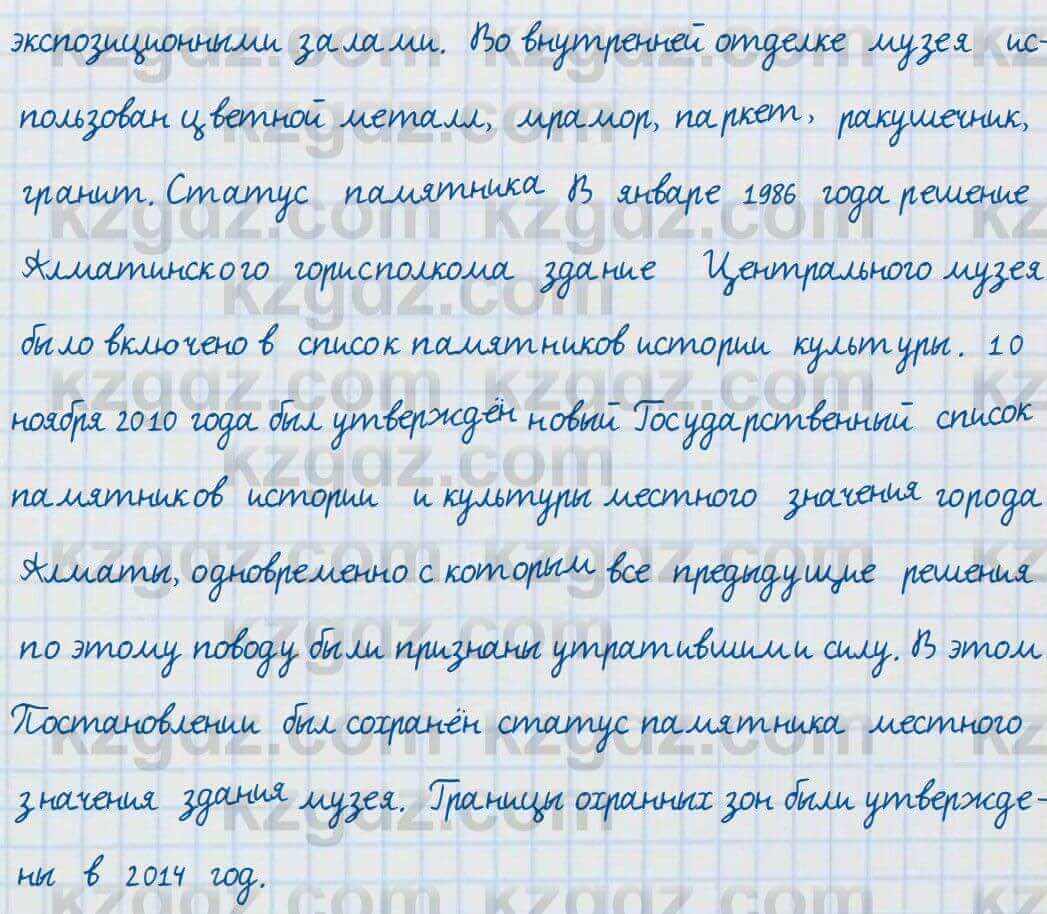 экспозиционными залами. Во внутренней отделке музея ис-
пользован цветной металл, мрамор, паркет, ракушечник,
гранит. Статус памятника В январе 1986 года решение
Алматинского горисполкома здание Центрального музея
было включено в список памятников истории культуры. 10
ноября 2010 года был утверждён новый Государственный список
памятников истории и культуры местного значения города
Алматы, одновременно с которым все предыдущие решения
по этому поводу были признаны утратившими силу. В этом
Постановлении был сохранён статус памятника местного
значения здания музея. Границы охранных зон были утвержде-
ны в 2014 год.